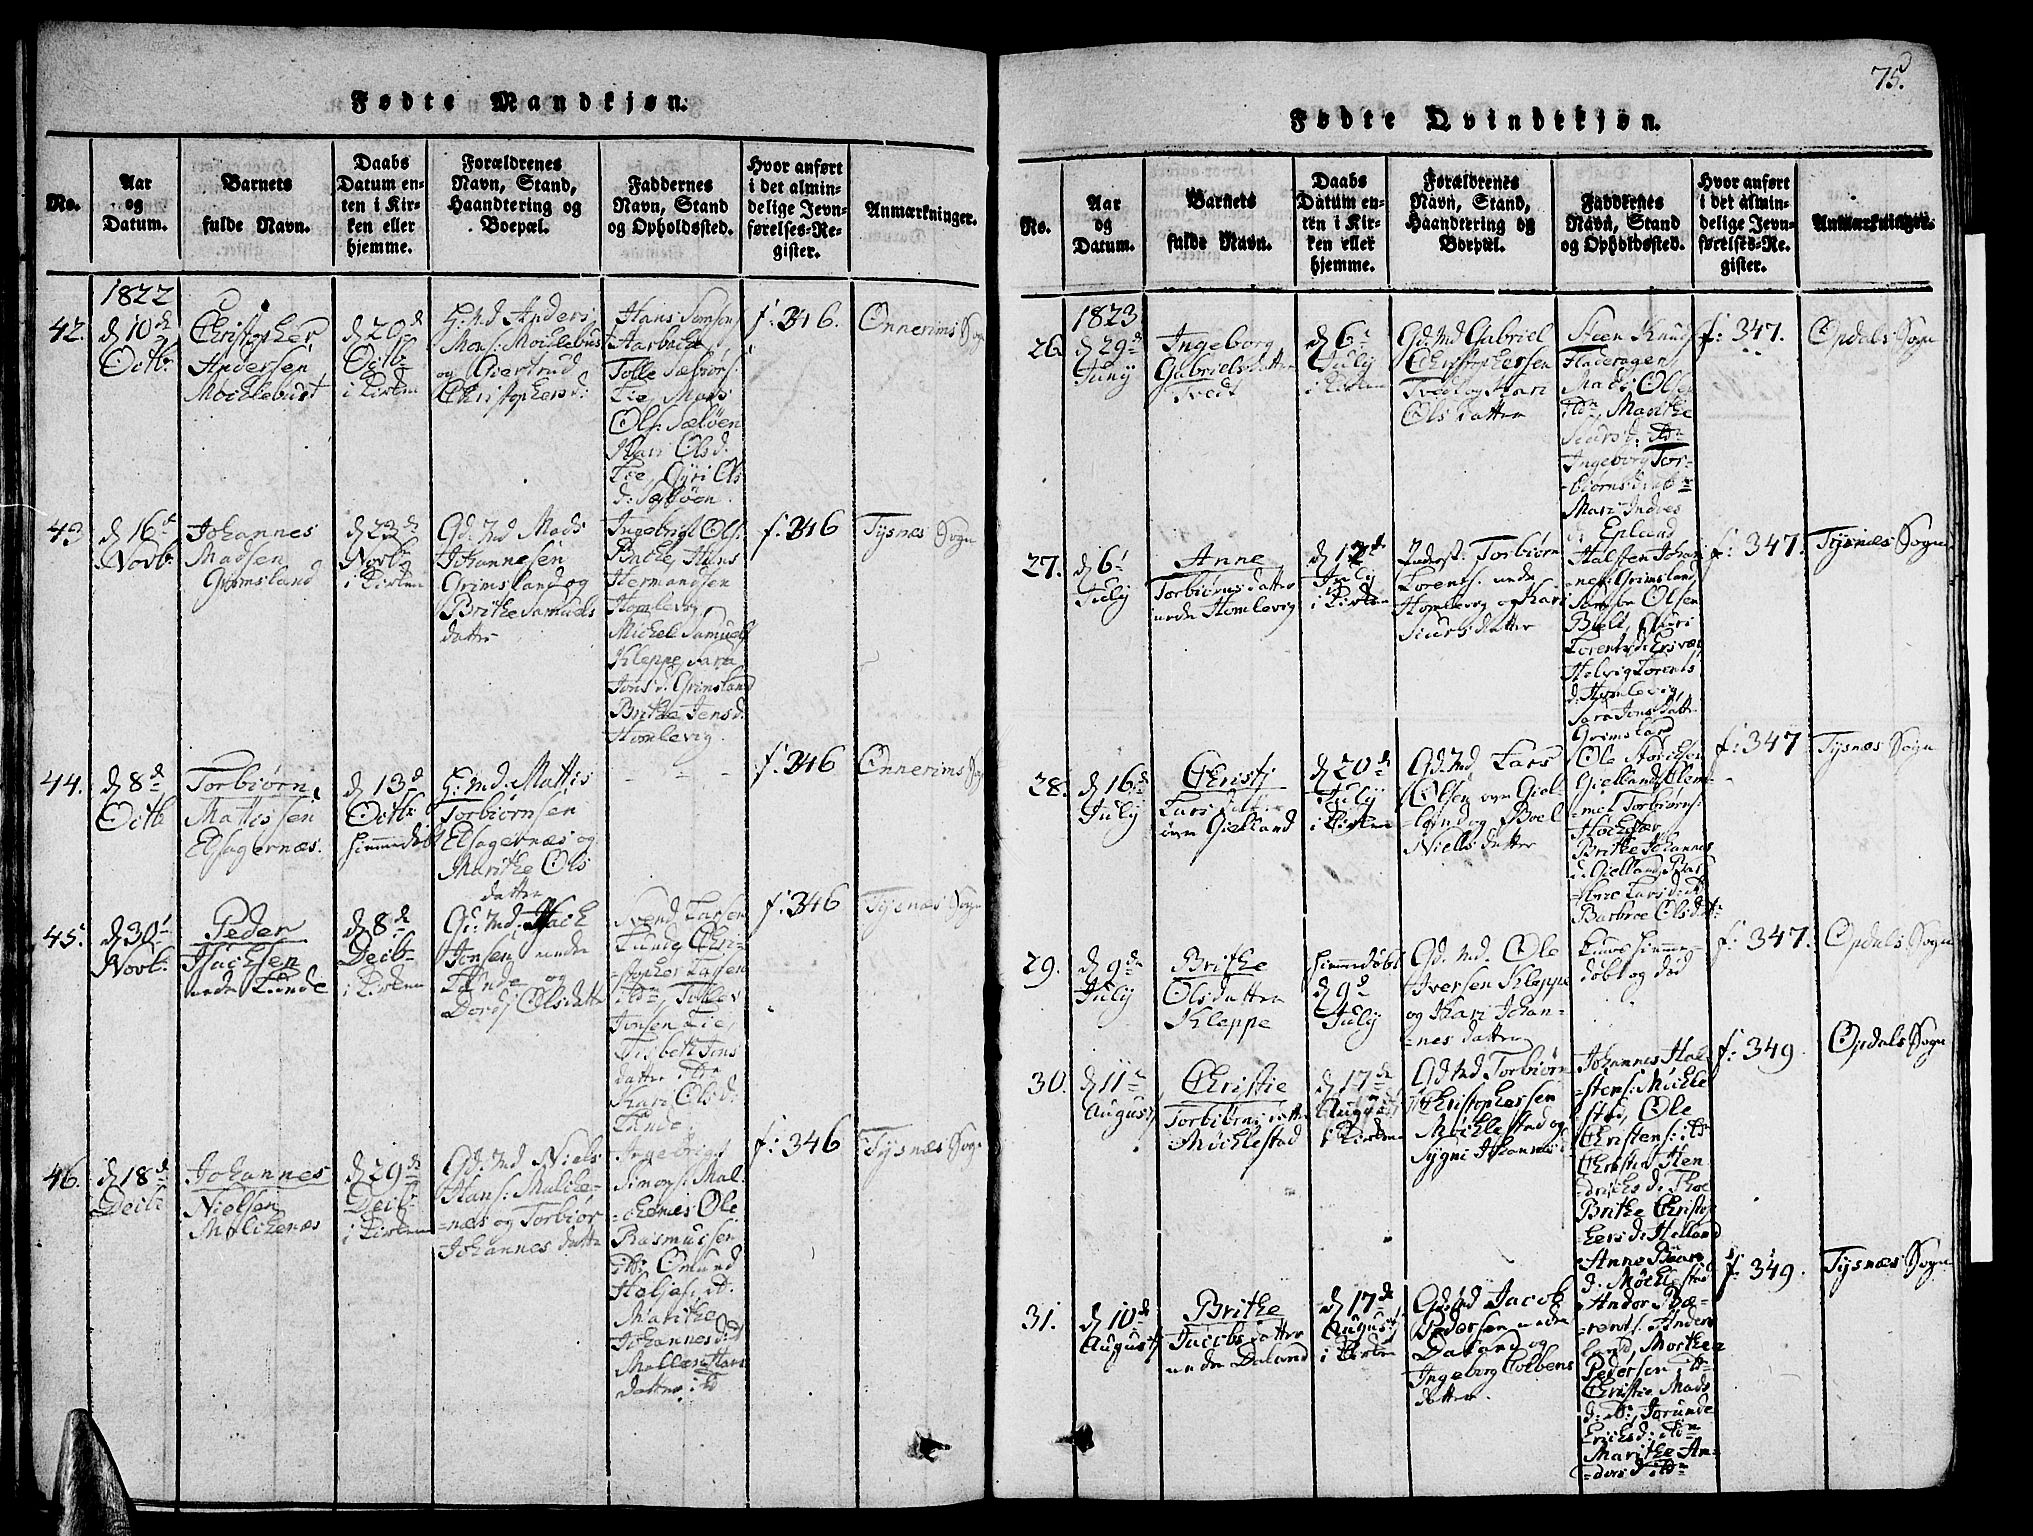 75.
Fødte Mandkjøn.
No.
Aar
og
Datum.
Barnets
fulde Navn.
Daabs
Datum en-
ten i Kir-
ken eller
hjemme.
Forældrenes
Navn, Stand,
Haandtering og
Boepæl.
Faddernes
Navn, Stand
og Opholdssted.
Hvor anført
i det almin-
delige Jevn-
førelses-Re-
gister.
Anmærkninger.
1822
42.
d 10de
Octbr
Christopher
Andersen
Mochlebust
d 20de
Octbr
i Kirken
G: Md Anders
Mons: Mochlebust
og Giertrud
Christophersd:
Hans Simons:
Aarbacke
Tolle Sæbiørs:
Lie, Mons
Ols: Sæløen
Kari Olsd:
Lie, Gyri Ols
d: Sæløen.
f: 346.
Onnerims Sogn
43
d 16de
Novb:
Johannes
Madsen
Grimsland
d 23de
Novbr
i Kirken
Gd: Md Mads
Johannesen
Grimsland og
Brithe Samuels
datter
Ingebrigt Ols:
Hans
Hermandsen
Homlevig,
Michel Samuels:
Kleppe, Sara
Jons d. Grimsland
Brithe Jensd:
Homlevig.
f: 346
Tysnæs Sogn
44.
d 8de
Octb
Torbiørn
Mattissen
Elsagernæs.
d 13de
Octbr
hiemmedøbt
G: Md: Mattis
Torbiørnsen
Elsagernæs og
Marithe Ols
datter
- - -
f: 346
Onnerims Sogn
45.
d 30te
Novb:
Peder
Hachsen
nedre Lunde
d 8de
Decb-
i Kirken
Gd: Md: Hach
Jonsen nedre
Lunde og
Dordj Olsdatter
Svend Larsen
Lunde, Chri-
stopher Larsen
ibdm, Tollev
Jonsen Lie,
Lisbeth Jens
datter ibdm
Kari Olsd:
Lunde.
f: 346
Tysnæs Sogn
46.
d 18de
Decbr
Johannes
Nielsen
Malchenæs
d 29de
Decb:
i Kirken
Gd: Md Niels
Hans: Malche-
-næs og Torbiør
Johannes datter
Ingebrigt
Simons: Mal-
-chenæs Ole
Rasmussen
ibd, Omund
Haljes: ibd.
Marithe
Johannesd: ibd
Hans
datter ibd
f: 346
Tysnæs Sogn
Fødte Qvindekjøn.
No.
Aar
og
Datum.
Barnets
fulde Navn.
Daabs
Datum en-
ten i Kir-
ken eller
hjemme.
Forældrenes
Navn, Stand,
Haandtering og
Boepæl.
Faddernes
Navn, Stand
og Opholdssted.
Hvor anført
i det almin-
delige Jevn-
førelses-Re-
gister.
Anmærkninger.
1823
26.
d 29de
Juny
Ingeborg
Gabrielsdatter
Tvedt
d 6te
July
i Kirken
Gd: Md Gabriel
Christophersen
Tvedt og Kari
Olsdatter
Steen Knuds:
Fladeragen
Mads Olsen
ibdm, Marithe
Siursd: ibdm
Ingeborg Tor-
-biørnsd: ibdm
Mari Andres
d: Epland
f: 347.
Opdals Sogn
27.
d 6te
July
Anne
Torbiørns datter
nedre Homlevig
d 13de
July
i Kirken
Torbiørn
Lorents: nedre
Homlevig og Kari
Siurs datter
Halsten Johan-
-nes: Grimsland
Samson Olsen
Lorentsd:
Helvig Lorents
d: Homlevig
Sara Jons datter
Grimsland
f: 347.
Tysnæs Sogn
28.
d 16de
July
Christj
Lars datter
øvre Gielland
d 20de
July
i Kirken
Gd: Md Lars
Olsen øvre Giel-
-land og Boel
Niels datter
Ole
Gielland, Clem-
-met Torbiørns:
Brithe Johannes
d: Gielland,
Lars d: ibd
Barbroe Olsdatter
f: 347
Tysnæs Sogn
29.
d 9de
July
Brithe
Olsdatter
Kleppe
hiemmedøbt
d 9de
July
Gd: Md: Ole
Iversen Kleppe
og Kari Johan-
-nes datter
hiemme-
døbt og død
f: 347.
Opdals Sogn
30.
d 11te
August
Christie
Torbiørns datter
Mochlestad
d 17de
August
i Kirken
Gd Md Torbiørn
Christophersen
Mochlestad og
Sygni Johannes d:
Johannes Hal-
-stens: Mochle
stad, Ole
Christens: ibd
Christie Hen-
drichs d:
Brithe Christop
hers d: Helland
Anne
d: Mochlestad
f: 349.
Opdals Sogn
31.
d 10de
August
Brithe
Jacobsdatter
nedre Daland
d 17de
August
i Kirken
Gd: Md Jacob
Pedersen nedre
Daland og
Ingeborg Colbens
datter.
Anders
Ander
land, Morthen
Pedersen ibdm
Christie Mads
d: ibd:, Jorunde
Erichsd: ibdm
Marithe An-
-ders d ibdm
f: 349.
Tysnæs Sogn